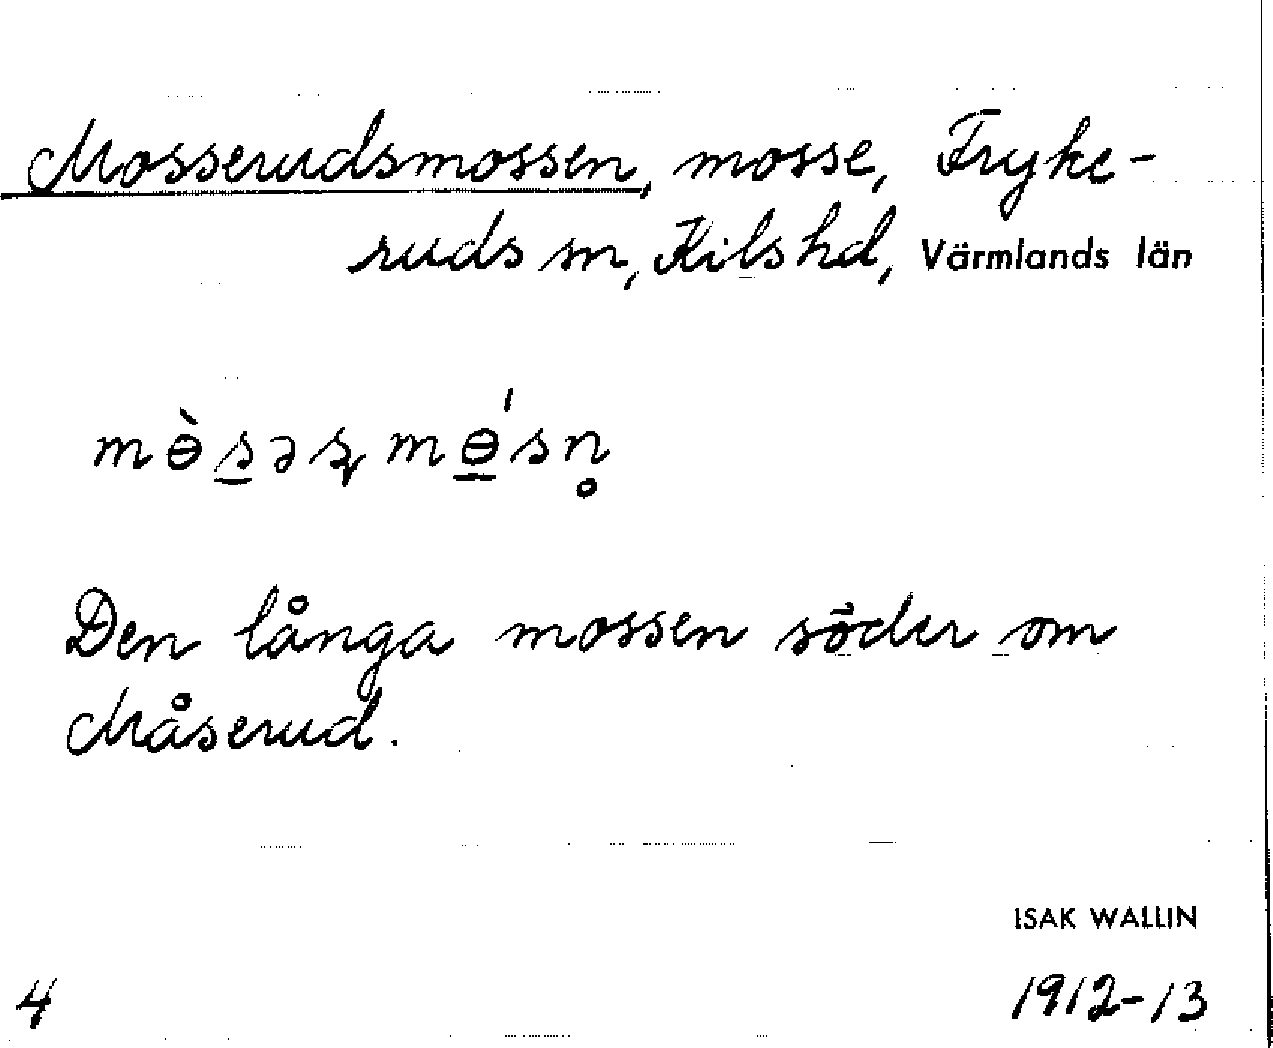 Mosserudsmossen, mosse, Fryke-
ruds sn, Kils hd, Värmlands län
mɵ̀s̲əʂmɵ̲́sn̥
Den långa mossen söder om
Måserud.
ISAK WALLIN
4 1912-13